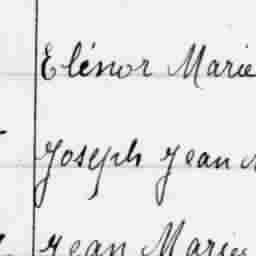 Elénor Marie
Joseph Jean
Jean Marie